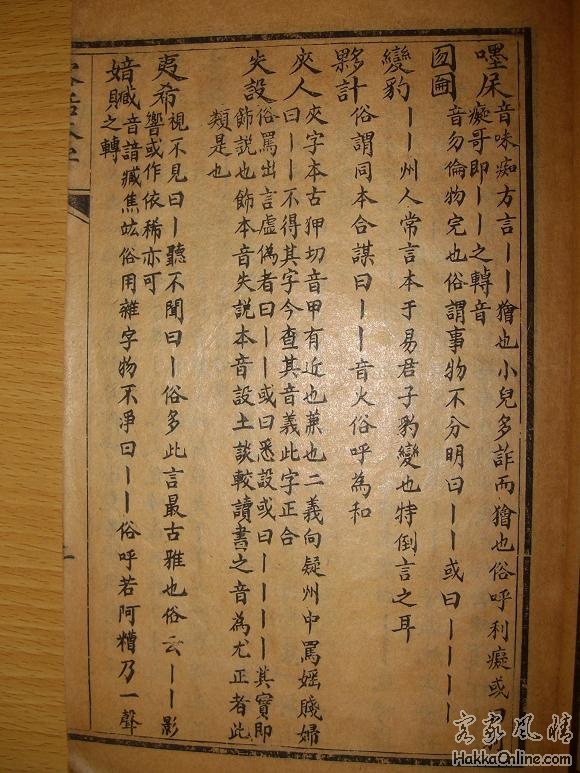 嚜杘 音味痴方言丨丨獪也小兒多詐而獪也俗呼利癡或曰
癡哥即丨丨之轉音
囫圇 音勿倫物完也俗謂事物不分明曰丨丨或曰丨丨丨丨
變豹 丨丨州人常言本于易君子豹變也特倒言之耳
夥計 俗謂同本合謀曰丨丨音火俗呼為和
夾人 夾字本古狎切音甲有近也蒹也二義向疑州中罵婬賤婦
曰丨丨不得其字今查其音義此字正合
失設 俗罵出言虛偽者曰丨丨或曰悉設或曰丨丨丨丨其實即
飾說也飾本音失說本音設土談較讀書之音為尤正者此
類是也
夷希 視不見曰丨聽不聞曰丨俗多此言最古雅也俗云丨丨影
響或作依稀亦可
贓 音諳臧焦竑俗用雜字物不淨曰丨丨俗呼若阿糟乃一聲
之轉
客家風情
HakkaOnline.com